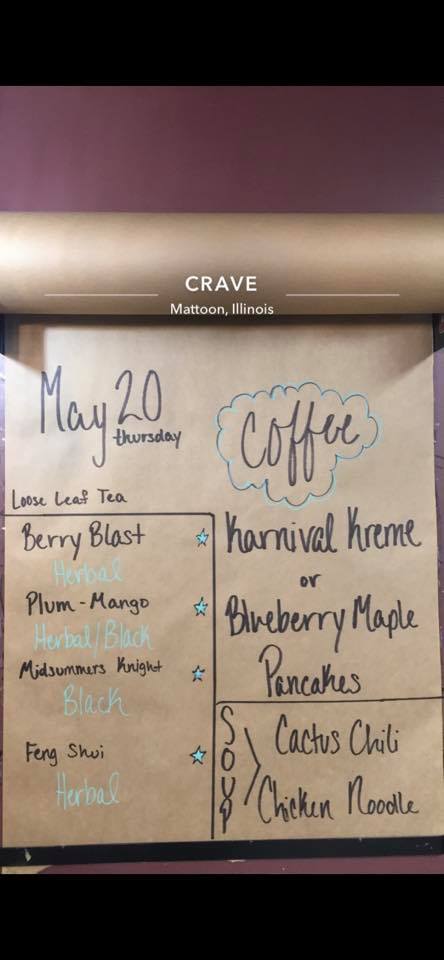 CRAVE
Mattoon, Illinois
May 20
thursday
Loose Leaf Tea
Berry Blast
Herbal
Plum-Mango
Herbal/Black
Midsummers Knight
Black
Feng Shui
Herbal
Coffee
Karnival Kreme
or
Blueberry Maple
Pancakes
SOUP
Cactus Chili
Chicken Noodle